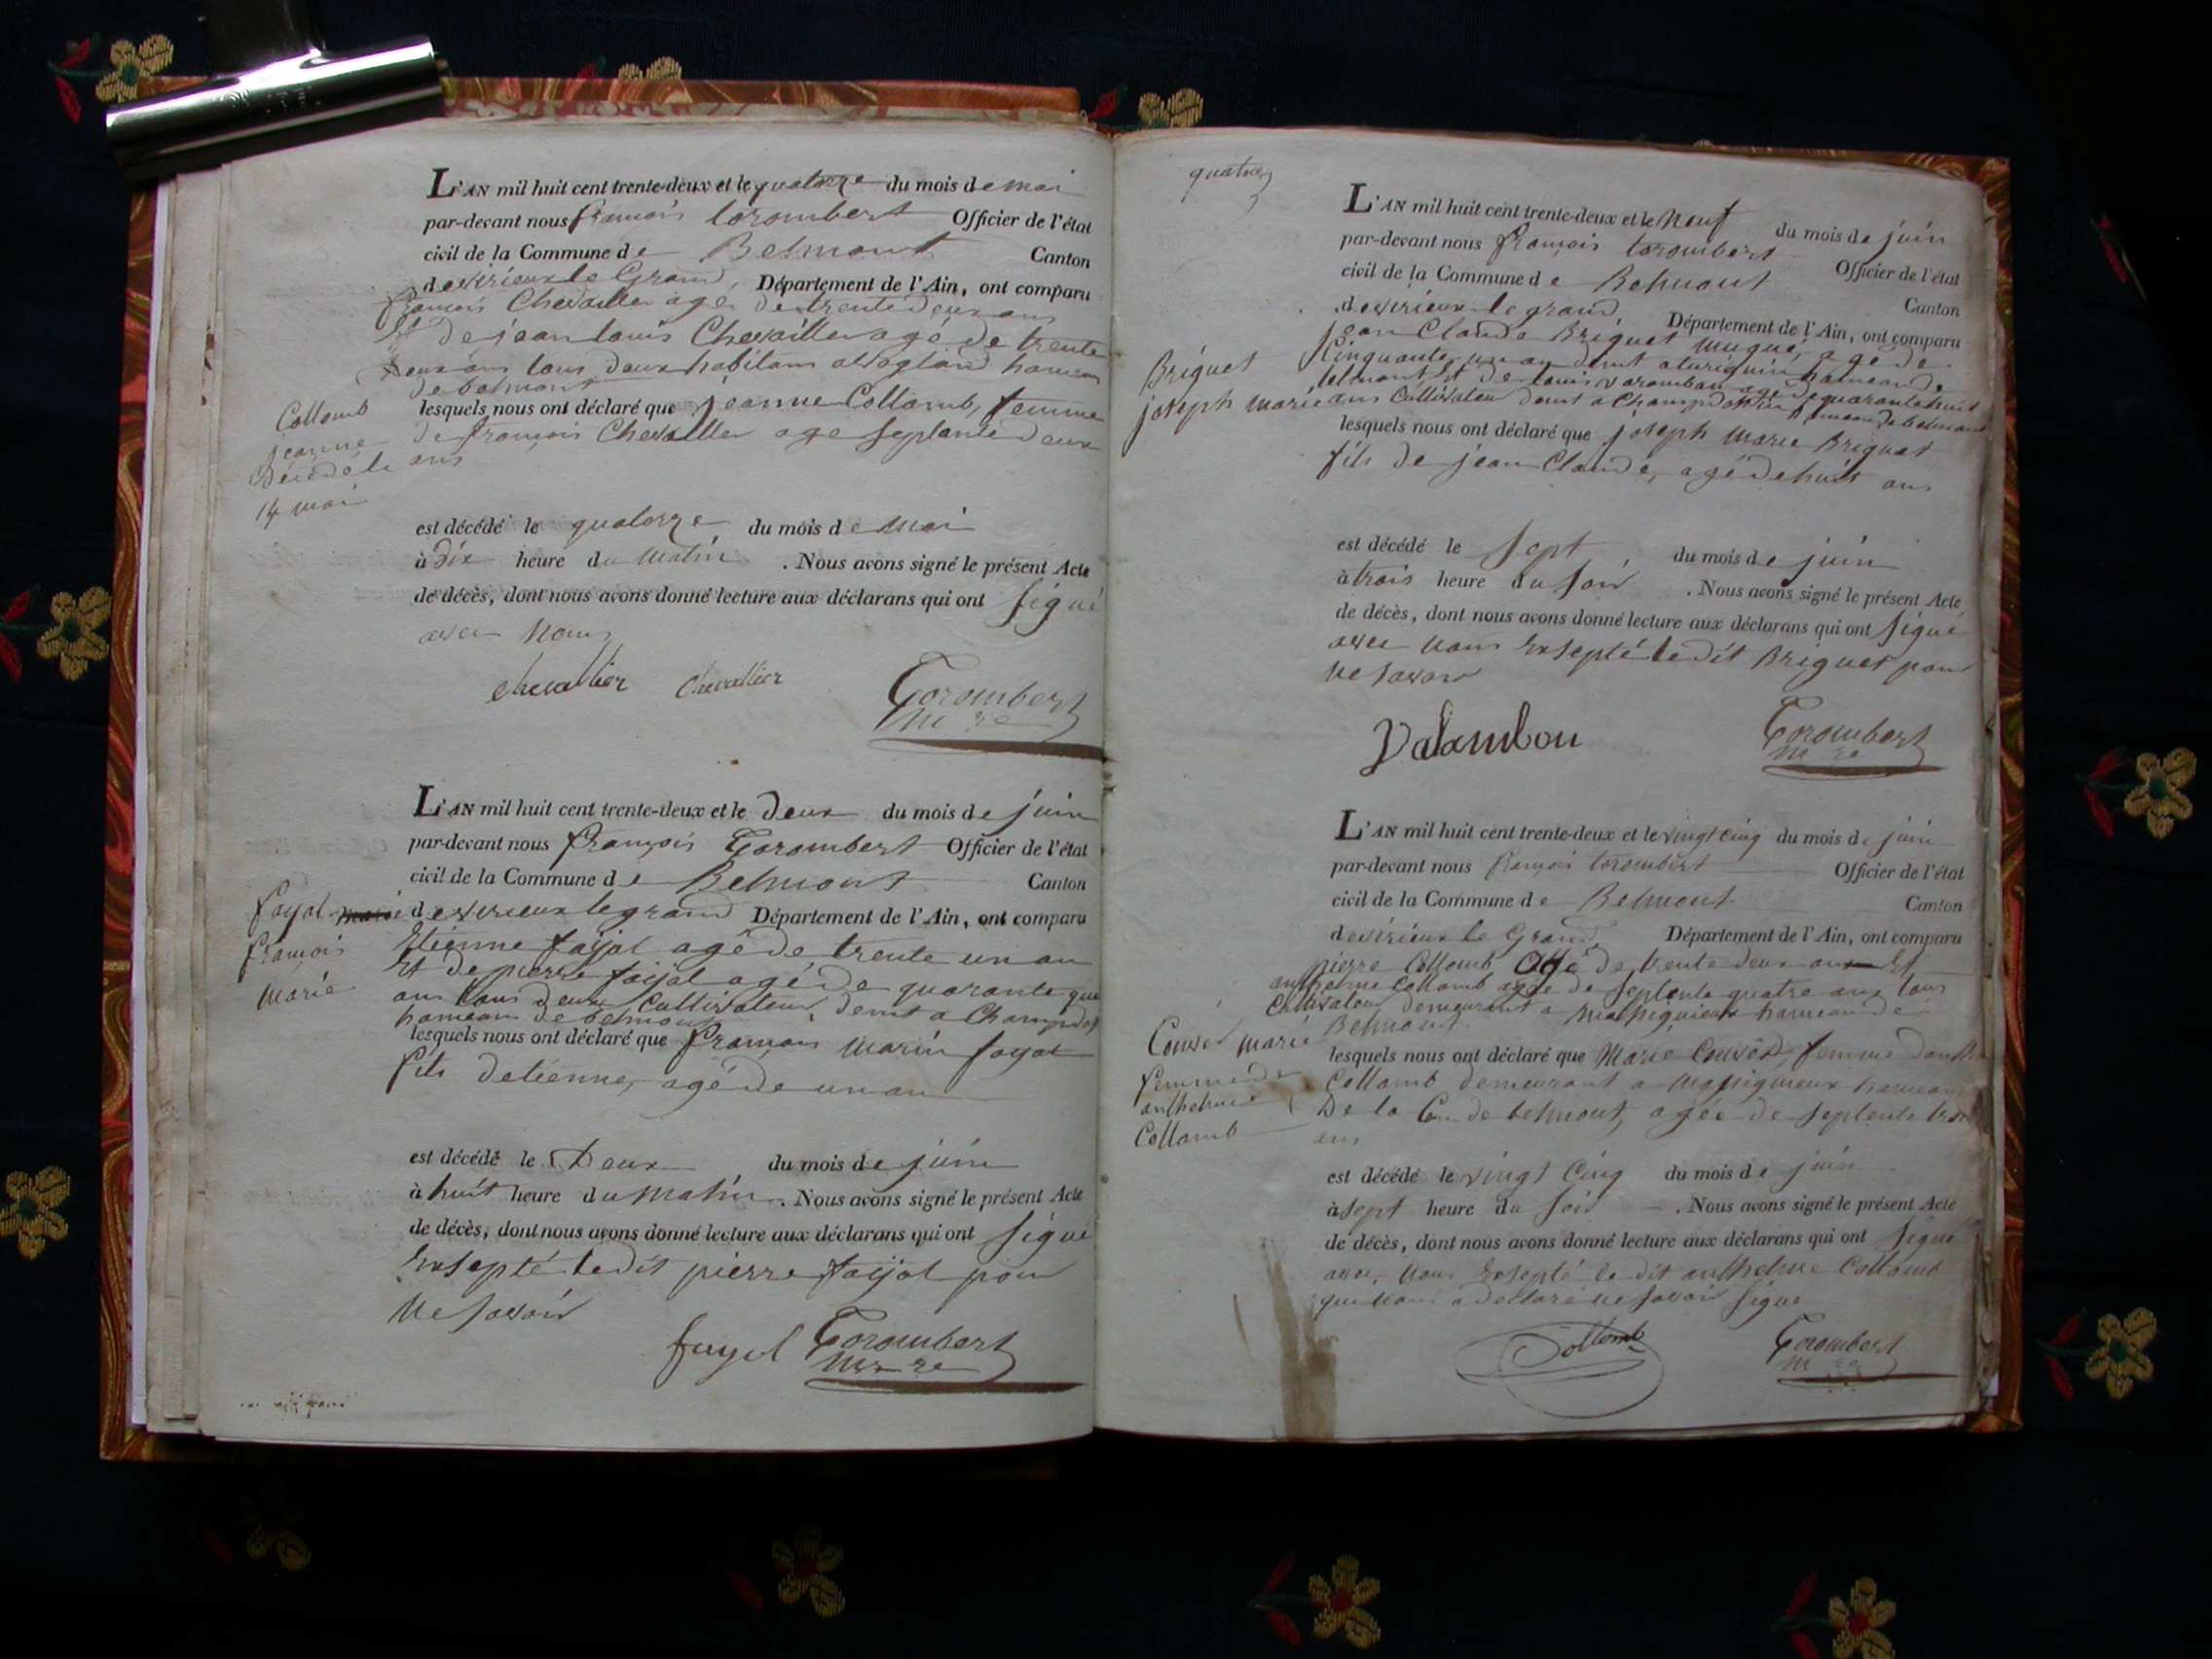 L'AN mil huit cent trente-deux et le quatorze du mois de mai
par-devant nous françois torombert Officier de l'état
civil de la Commune de Belmont Canton
de virieux le Grand, Département de l'Ain, ont comparu
françois Chevallier agé de trente deux ans
Et de jean louis Chevaillier agé de trente
deux ans tous deux habitans a vogland hameau
de belmont
Collomb
jeanne
Décédé le
14 mai
lesquels nous ont déclaré que jeanne Collomb, femme
de françois Chevallier age septante deux
ans
est décédé le quatorze du mois de mai
à dix heure du matin . Nous avons signé le présent Acte
de décès, dont nous avons donné lecture aux déclarans qui ont signé
avec nous
chevallier chevallier Torombert
m re
L'AN mil huit cent trente-deux et le deux du mois de juin
par-devant nous françois Torombert Officier de l'état
civil de la Commune de Belmont Canton
de virieux le grand Département de l'Ain, ont comparu
fayol marie
françois
marie
Etienne fayol agé de trente un an
Et de pierre fayol agé de quarante
ans tous deux Cultivateur, demt a
hameau de belmont
lesquels nous ont déclaré que françois marin fayol
fils detienne, agé de un an
est décédé le Deux du mois de juin
à huit heure du matin . Nous avons signé le présent Acte
de décès, dont nous avons donné lecture aux déclarans qui ont signé
Exsepté ledit pierre fayol pour
ne savoir
fayol Torombert
m re
quatre
L'AN mil huit cent trente-deux et le neuf du mois de juin
par-devant nous françois torombert Officier de l'état
civil de la Commune de Belmont Canton
de virieux le grand, Département de l'Ain, ont comparu
jean Claude Briguet agé de
Cinquante un an demt hameau de
belmont Et de louis varambau agé de quarante huit
ans Cultivateur demt a hameau de belmont
Briguet
joseph marie
lesquels nous ont déclaré que joseph Marie Briguet
fils de jean Claude, agé de huit ans
est décédé le sept du mois de juin
à trois heure du soir . Nous avons signé le présent Acte
de décès, dont nous avons donné lecture aux déclarans qui ont signé
avec nous Exsepté le dit Briguet pour
ne savoir
Valambou Torombert
m re
L'AN mil huit cent trente-deux et le vingt cinq du mois de juin
par-devant nous françois torombert Officier de l'état
civil de la Commune de Belmont Canton
de virieux le Grand Département de l'Ain, ont comparu
pierre Collomb agé de trente deux ans Et
anthelme Collomb agé de septente quatre ans tous
Cultivateur demeurant a hameau de
Belmont
marie
femme de
anthelme
Collomb
lesquels nous ont déclaré que Marie femme
Collomb demeurant a hameau
De la Cne de belmont, agée de septente trois
ans
est décédé le vingt cinq du mois de juin
à sept heure du soir . Nous avons signé le présent Acte
de décès, dont nous avons donné lecture aux déclarans qui ont signé
avec nous Exsepté le dit anthelme Collomb
qui nous a declaré ne savoir signé
Collomb Torombert
m re